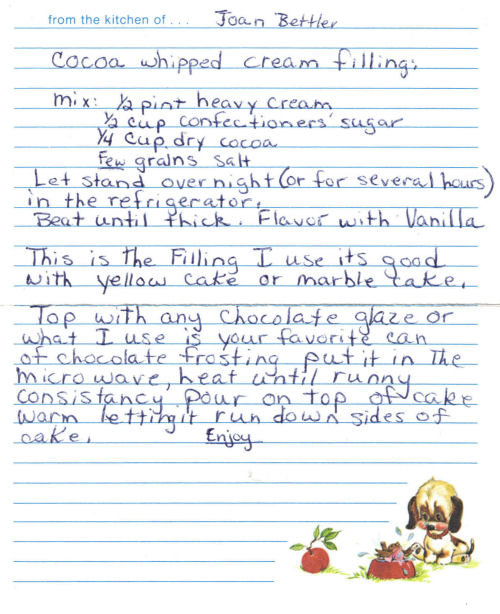 from the kitchen of . . . Joan Bettler
Cocoa whipped cream filling:
mix: 1/2 pint heavy cream
1/2 cup confectioners' sugar
1/4 cup dry cocoa
Few grains salt
Let stand overnight (or for several hours)
in the refrigerator.
Beat until thick. Flavor with Vanilla
This is the Filling I use its good
with yellow cake or marble cake.
Top with any chocolate glaze or
what I use is your favorite can
of chocolate frosting put it in the
microwave, heat until runny
consistancy. Pour on top of cake
warm letting it run down sides of
cake. Enjoy